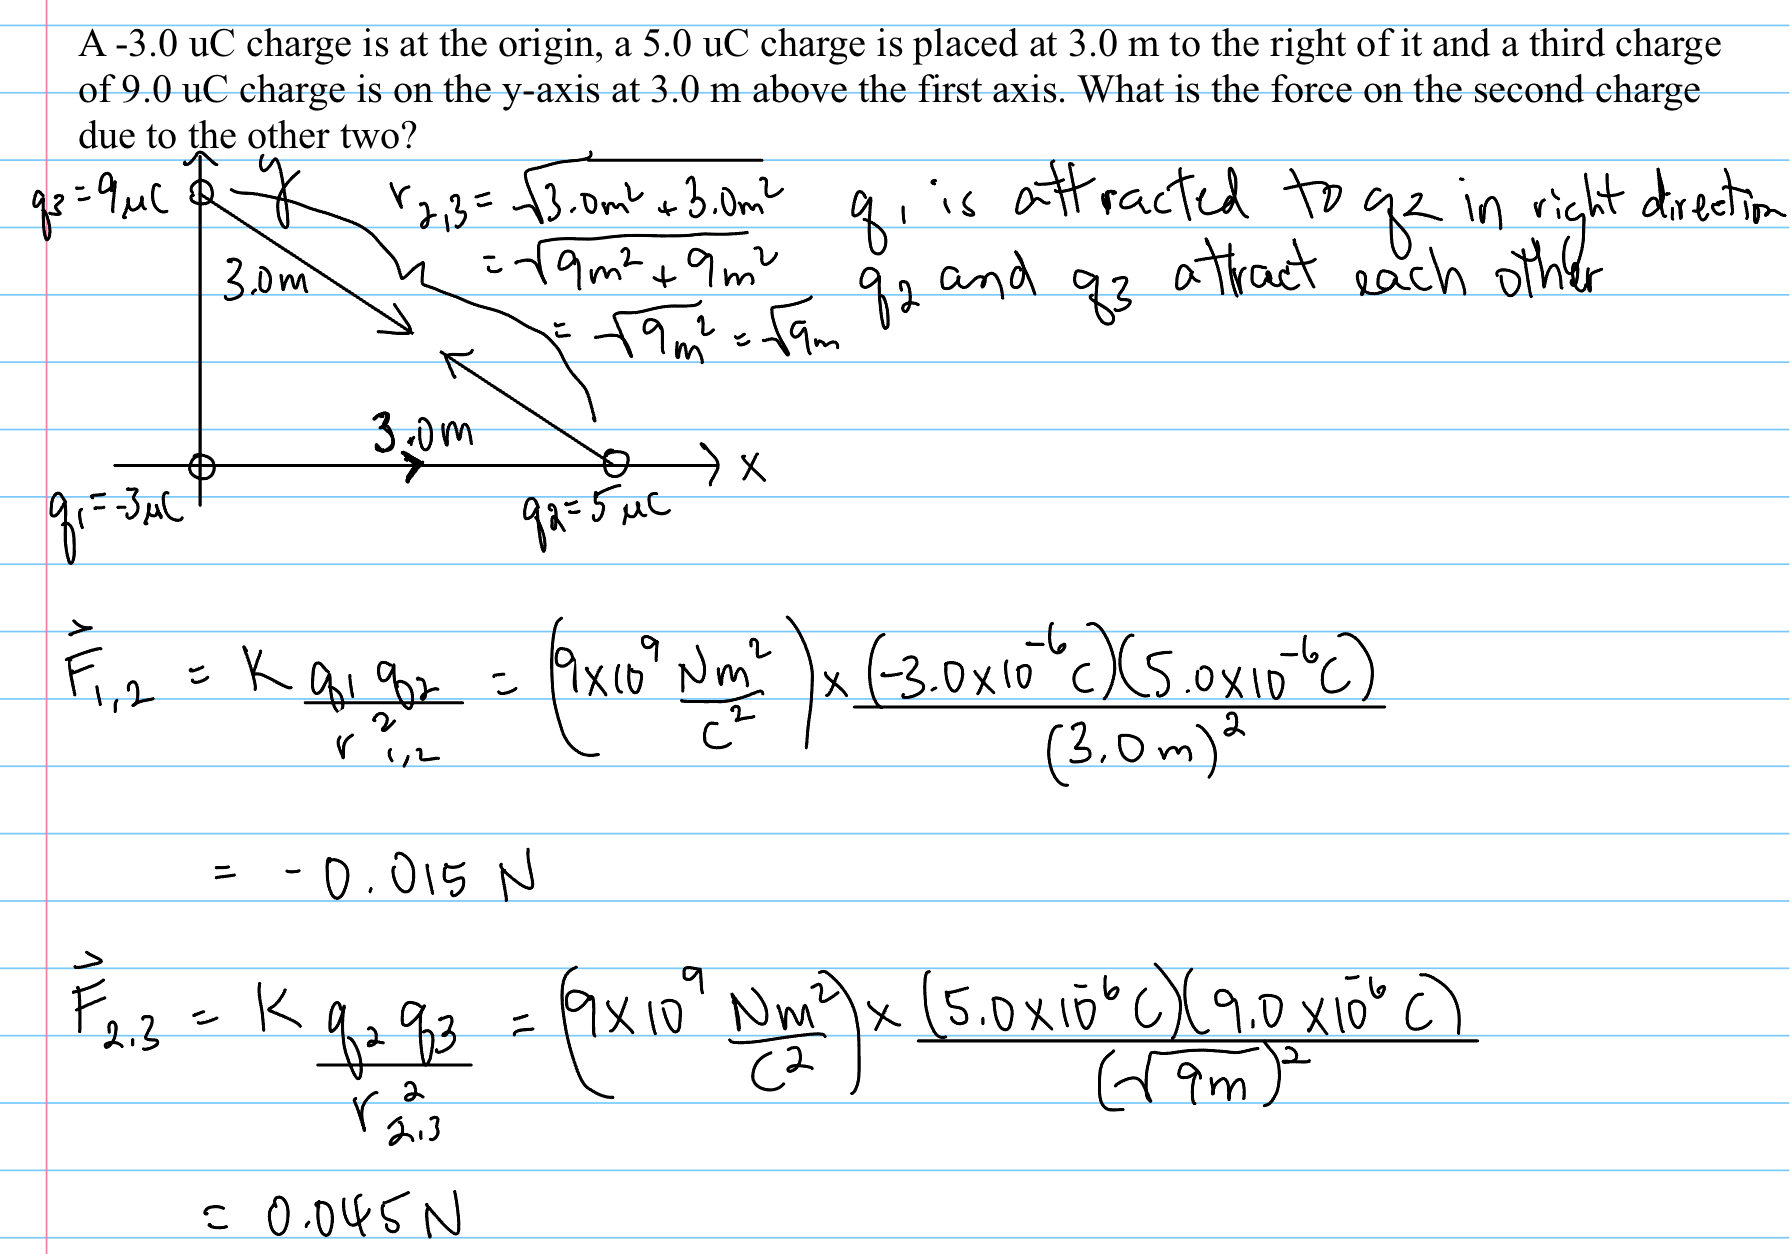 A -3.0 uC charge is at the origin, a 5.0 uC charge is placed at 3.0 m to the right of it and a third charge
of 9.0 uC charge is on the y-axis at 3.0 m above the first axis. What is the force on the second charge
due to the other two?
y
q3=9μC
r2,3 = √3.0m² + 3.0m²
= √9m² + 9m²
= √9m² = √9m
q1 is attracted to q2 in right direction
q2 and q3 attract each other
3.0m
3.0m
x
q1=-3μC
q2=5μC
F⃗1,2 = K q1 q2 / r²1,2 = (9x10⁹ Nm²/C²) x (-3.0x10⁻⁶C)(5.0x10⁻⁶C) / (3.0m)²
= -0.015 N
F⃗2,3 = K q2 q3 / r²2,3 = (9x10⁹ Nm²/C²) x (5.0x10⁻⁶C)(9.0x10⁻⁶C) / (√9m)²
= 0.045N